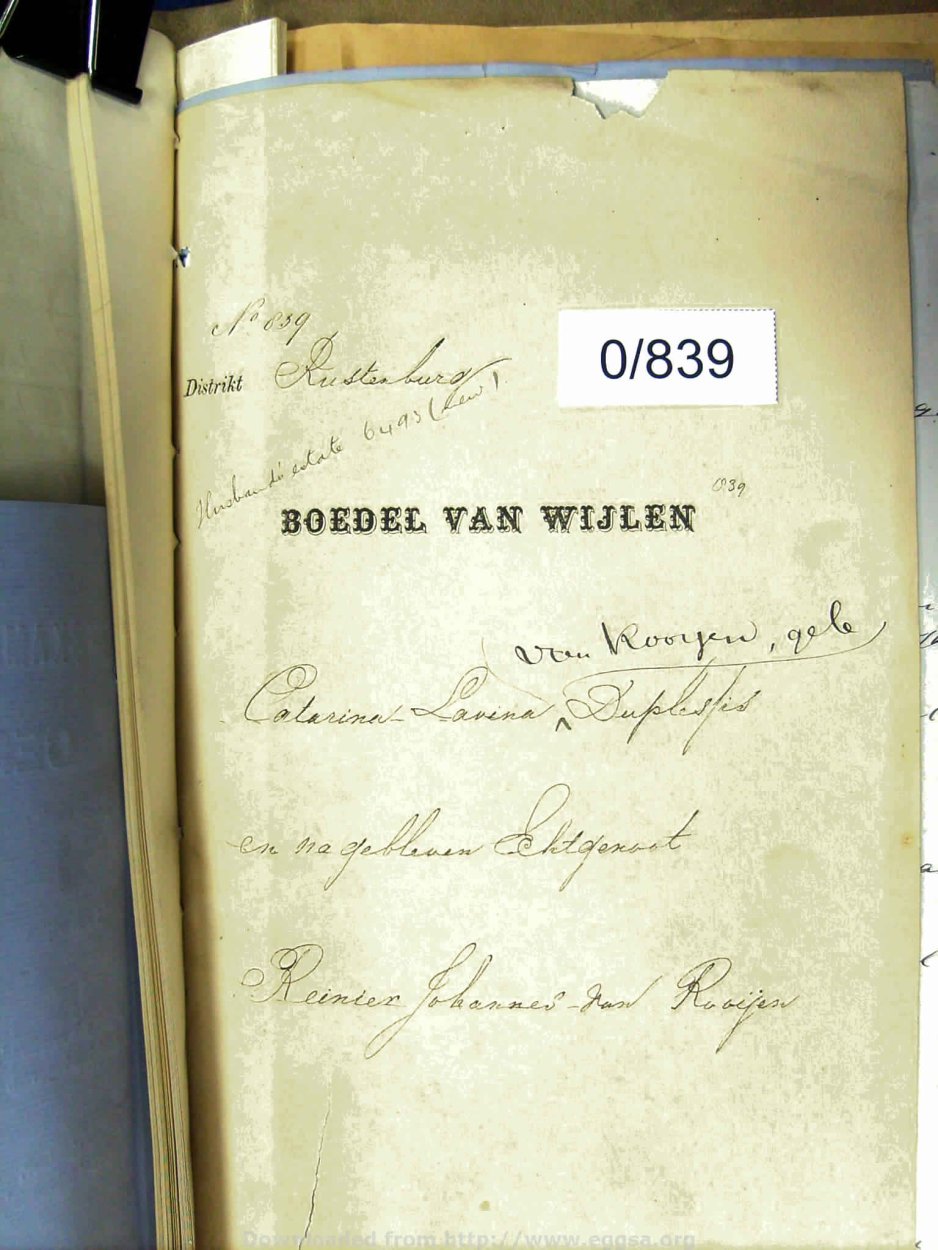 No 839
0/839
Distrikt Rustenburg
Husband's estate 6493 (New)
839
BOEDEL VAN WIJLEN
van Rooyen, geb
Catarina-Lavina ^ Duplessis
en nagebleven Echtgenoot
Reinier Johannes van Rooijen
Downloaded from http://www.eggsa.org